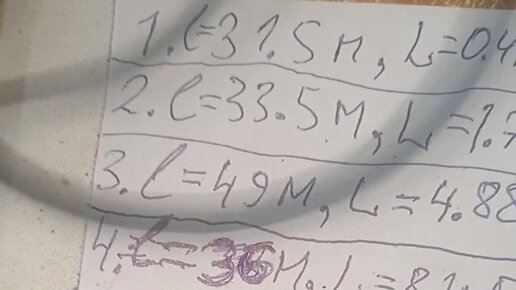 1. l=31.5м, L=0.4
2. l=33.5м, L=1.7
3. l=49м, L=4.88
4. l=36м, L=81.5